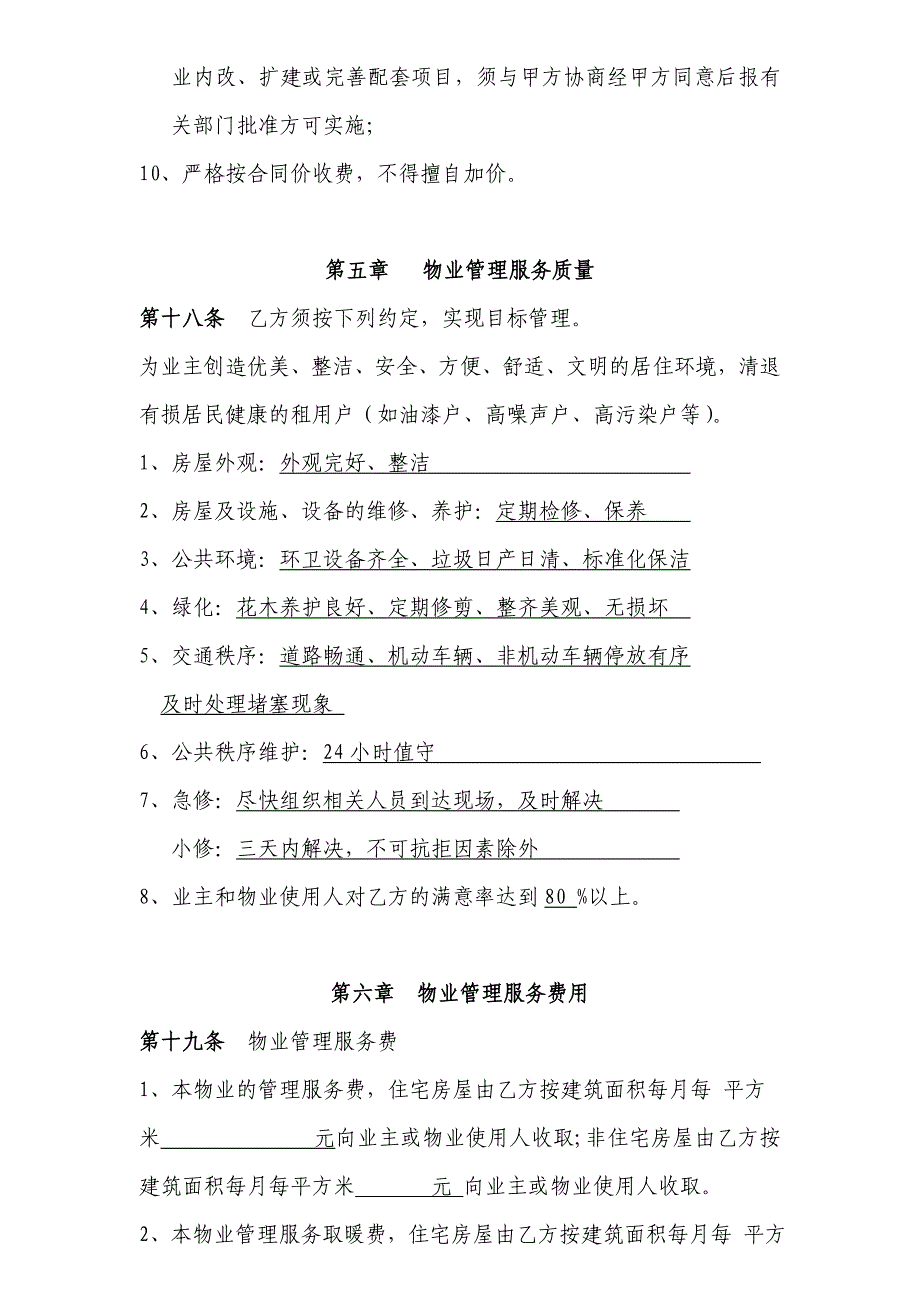 业内改、扩建或完善配套项目，须与甲方协商经甲方同意后报有
关部门批准方可实施；
10、严格按合同价收费，不得擅自加价。
第五章 物业管理服务质量
第十八条 乙方须按下列约定，实现目标管理。
为业主创造优美、整洁、安全、方便、舒适、文明的居住环境，清退
有损居民健康的租用户（如油漆户、高噪声户、高污染户等）。
1、房屋外观：外观完好、整洁
2、房屋及设施、设备的维修、养护：定期检修、保养
3、公共环境：环卫设备齐全、垃圾日产日清、标准化保洁
4、绿化：花木养护良好、定期修剪、整齐美观、无损坏
5、交通秩序：道路畅通、机动车辆、非机动车辆停放有序
及时处理堵塞现象
6、公共秩序维护：24 小时值守
7、急修：尽快组织相关人员到达现场，及时解决
小修：三天内解决，不可抗拒因素除外
8、业主和物业使用人对乙方的满意率达到 80 %以上。
第六章 物业管理服务费用
第十九条 物业管理服务费
1、本物业的管理服务费，住宅房屋由乙方按建筑面积每月每 平方
米 元向业主或物业使用人收取；非住宅房屋由乙方按
建筑面积每月每平方米 元 向业主或物业使用人收取。
2、本物业管理服务取暖费，住宅房屋由乙方按建筑面积每月每 平方